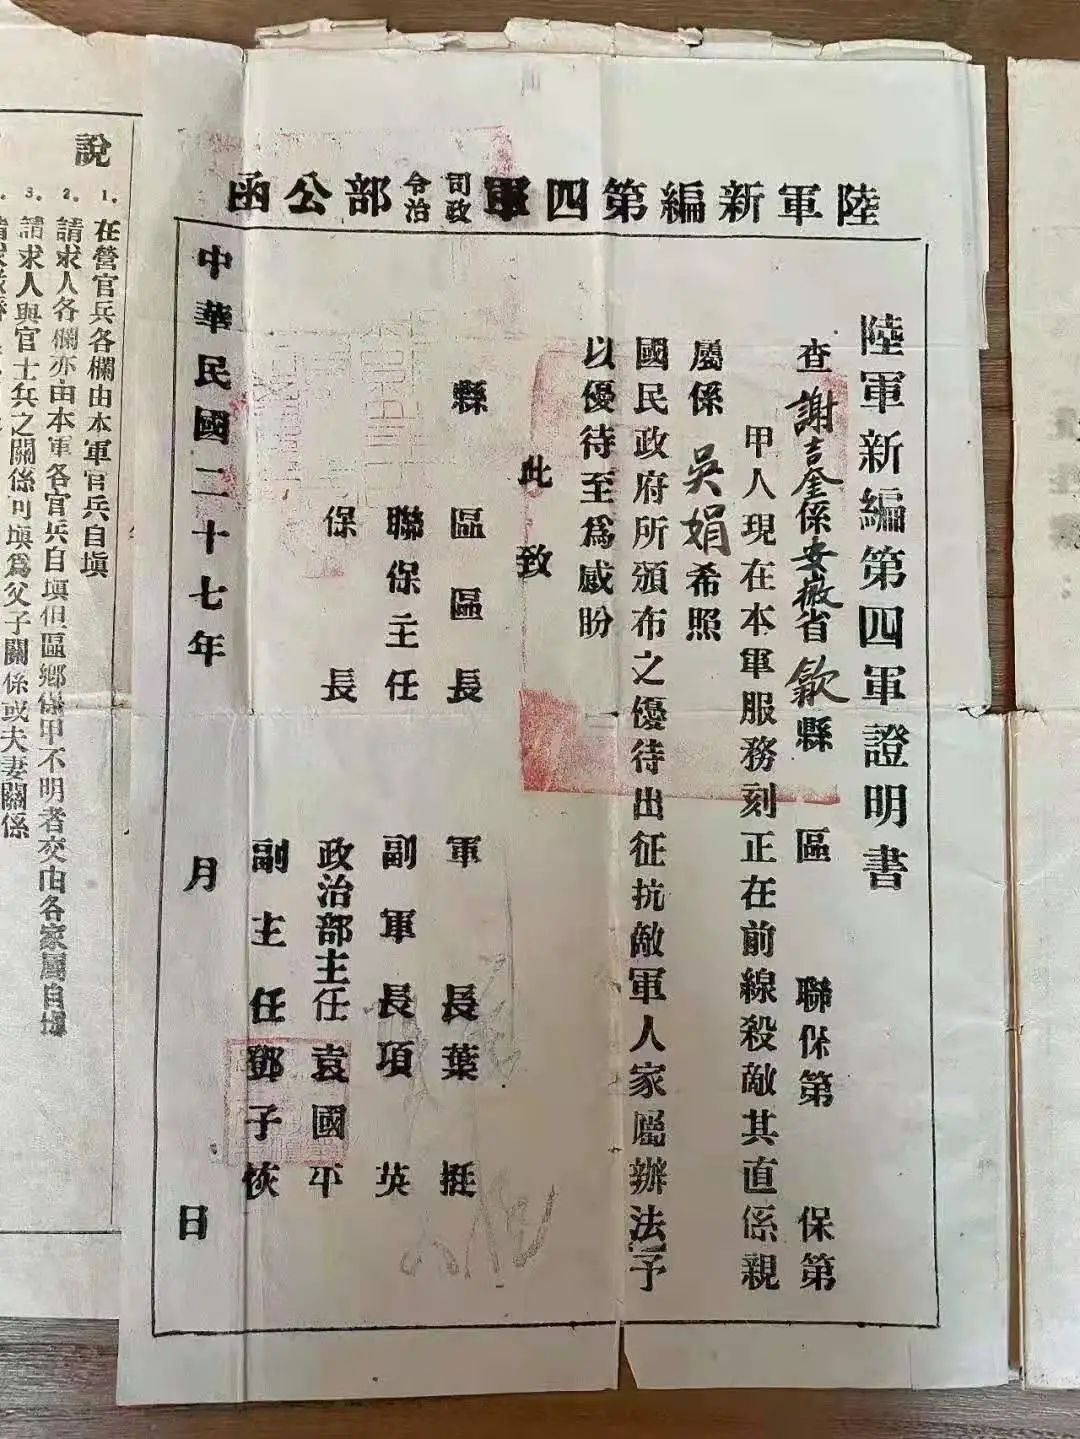 陸軍新編第四軍司令政治部公函
陸軍新編第四軍證明書
查謝吉奎係安徽省歙縣 區 聯保第 保第
甲人現在本軍服務刻正在前線殺敵其直係親
屬係吳娟希照
國民政府所頒布之優待出征抗敵軍人家屬辦法予
以優待至為感盼
此致
縣 區區長
聯保主任
保長
軍長葉挺
副軍長項英
政治部主任袁國平
副主任鄧子恢
中華民國二十七年 月 日
說
1. 在營官兵各欄由本軍官兵自填
2. 請求人各欄亦由本軍各官兵自填但區鄉保甲不明者交由各家屬自填
3. 請求人與官士兵之關係可填為父子關係或夫妻關係